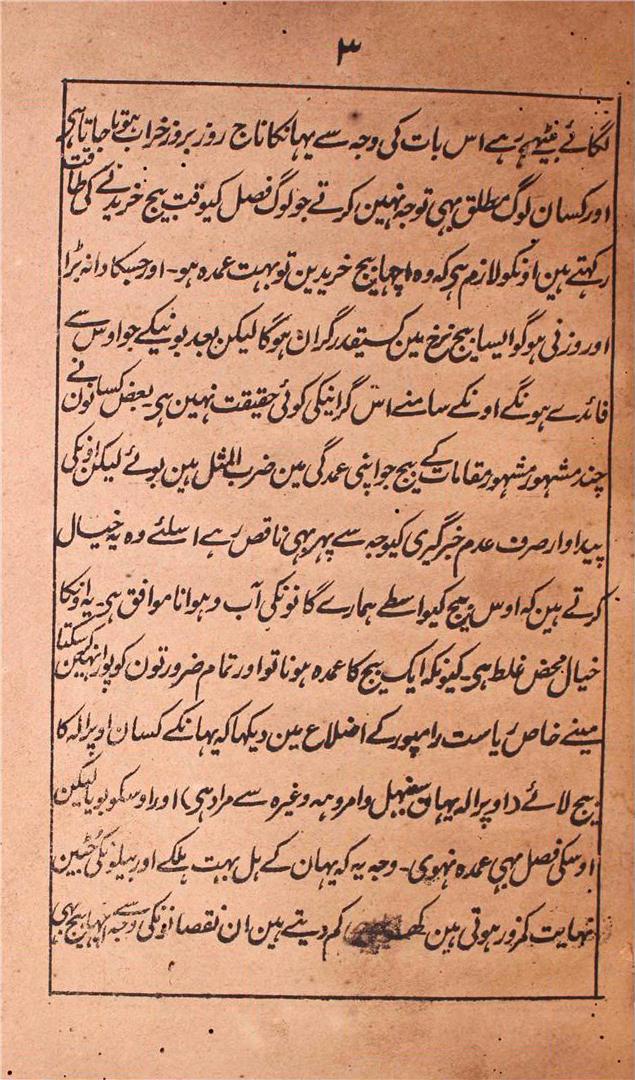 ۳
لگائے بیٹھے رہے اس بات کی وجہ سے یہانکا ناج روز بروز خراب ہوتا جاتا ہی
اور کسان لوگ مطلق بہی توجہ نہین کرتے جو لوگ فصل کیوقت بیج خریدنے کی طاقت
رکہتے ہین اونکو لازم ہی کہ وہ اچہا بیج خریدین تو بہت عمدہ ہو۔ اور جسکا دانہ بڑا
اور وزنی ہو گو ایسا بیج نرخ مین کسیقدر گران ہوگا لیکن بعد بونیکے جو اوس سے
فائدے ہونگے اونکے سامنے اس گرانیکی کوئی حقیقت نہین ہی۔ بعض کسانون نے
چند مشہور مشہور مقامات کے بیج جو اپنی عمدگی مین ضرب المثل ہین بوئے لیکن اونکی
پیداوار صرف عدم خبرگیری کیوجہ سے پہر بہی ناقص رہے اسلئے وہ یہ خیال
کرتے ہین کہ اوس بیج کیواسطے ہمارے گانونکی آب و ہوا ناموافق ہی۔ یہ اونکا
خیال محض غلط ہی۔ کیونکہ ایک بیج کا عمدہ ہونا تو اور تمام ضرورتون کو پورا نہین کرسکتا
مینے خاص ریاست رامپور کے اضلاع مین دیکہا کہ یہانکے کسان اوپرالہ کا
بیج لائے (اوپرالہ یہان سنبہل و امروہہ وغیرہ سے مراد ہی) اور اوسکو بویا لیکن
اوسکی فصل بہی عمدہ نہوی۔ وجہ یہ کہ یہان کے ہل بہت ہلکے اور بیلونکی جٹین
نہایت کمزور ہوتی ہین کم دیتے ہین ان نقصانونکی وجہ سے اچہا بیج بہی